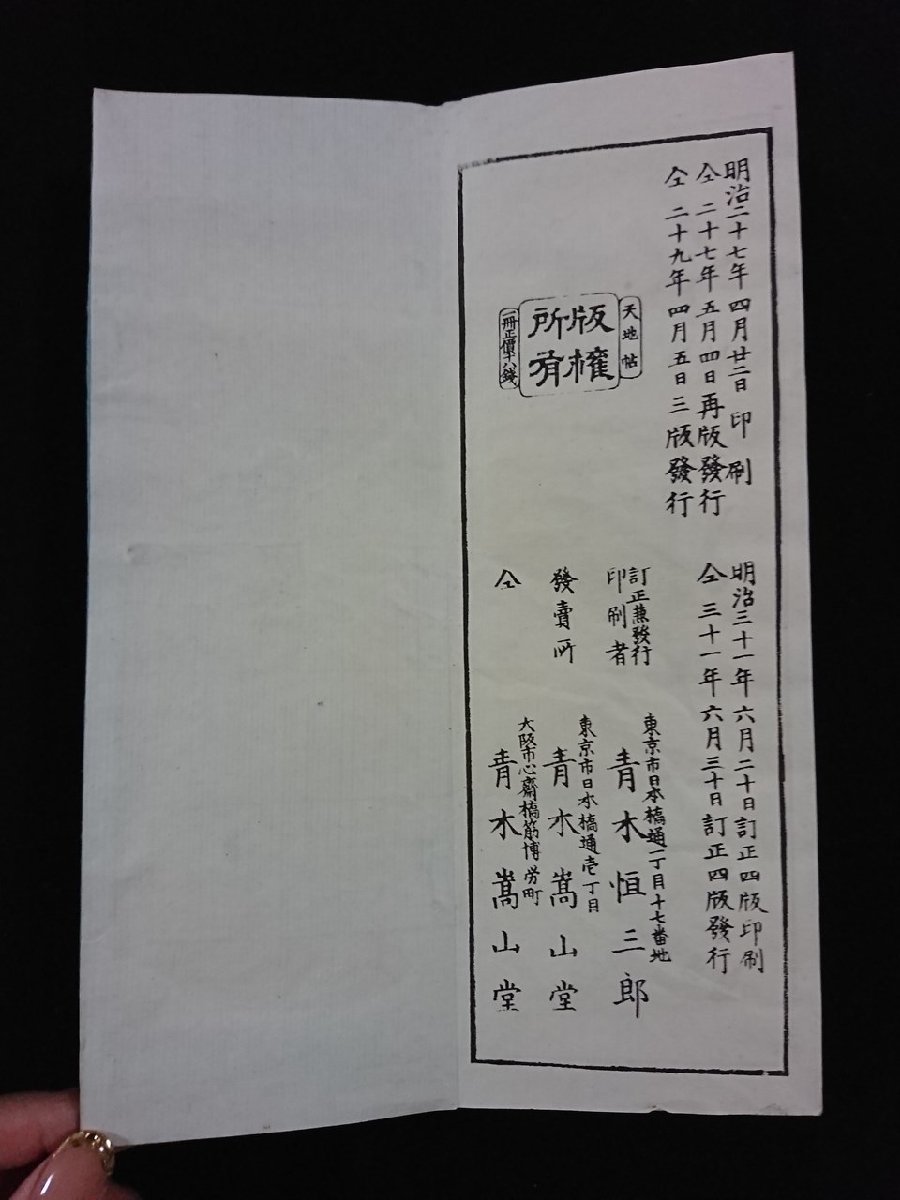 明治二十七年四月廿二日印刷
仝二十七年五月四日再版發行
仝二十九年四月五日三版發行
天地帖
版權
所有
一冊正價十八錢
明治三十一年六月二十日訂正四版印刷
仝三十一年六月三十日訂正四版發行
訂正兼發行
印刷者
東京市日本橋通一丁目十七番地
青木恒三郎
發賣所
東京市日本橋通壱丁目
青木嵩山堂
仝
大阪市心齋橋筋博労町
青木嵩山堂